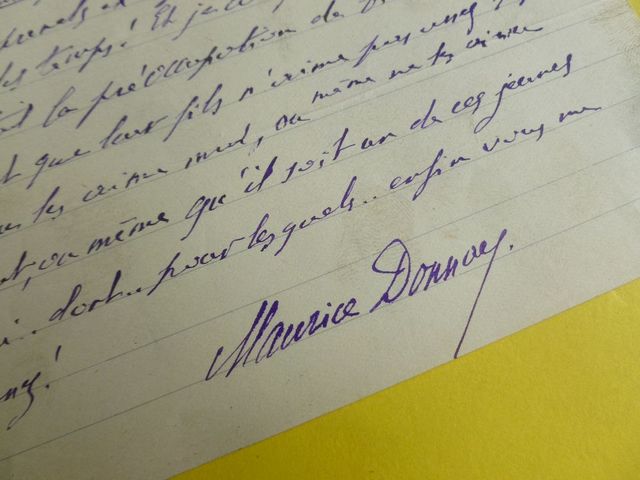 les temps! Et je
la préoccupation de
que leur fils n'aime pas assez
les aime mal, ou même ne les aime
ou même qu'il soit un de ces jeunes
dont.. pour lesquels.. enfin vous me
Maurice Donnay.